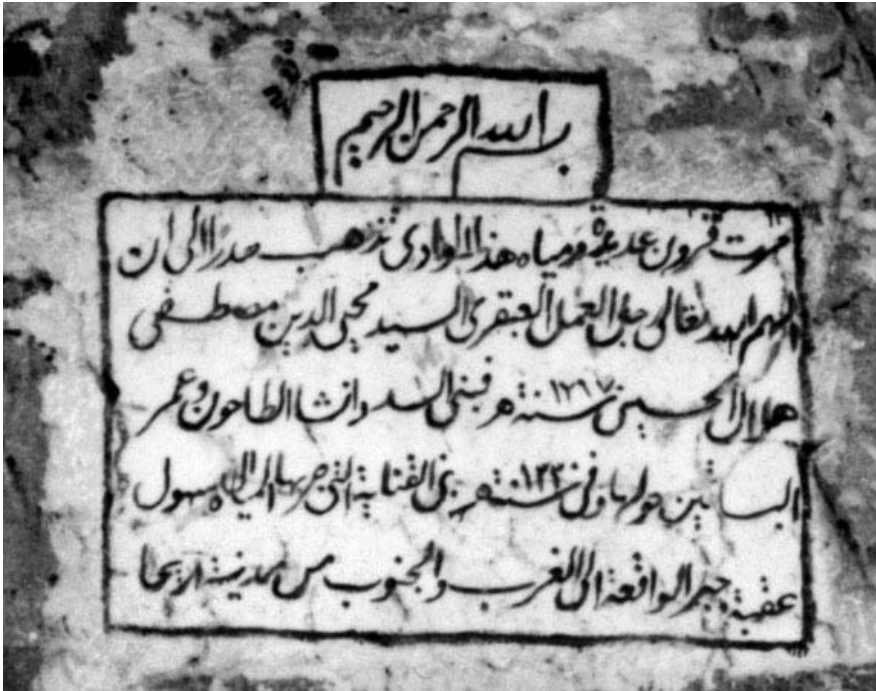 بسم الله الرحمن الرحيم
مرت قرون عديدة ومياه هذا الوادي تذهب هدرًا الى ان
الهم الله تعالى جل العمل العبقري السيد محي الدين مصطفى
هلال الحسيني سنة ١٢١٧ هـ فبنى السد وانشا الطاحون وعمر
البساتين حولها وفي سنة ١٢٢٠ هـ بنى القناية التي جر بها المياه الى سهول
عقبة جبر الواقعة الى الغرب والجنوب من مدينة اريحا